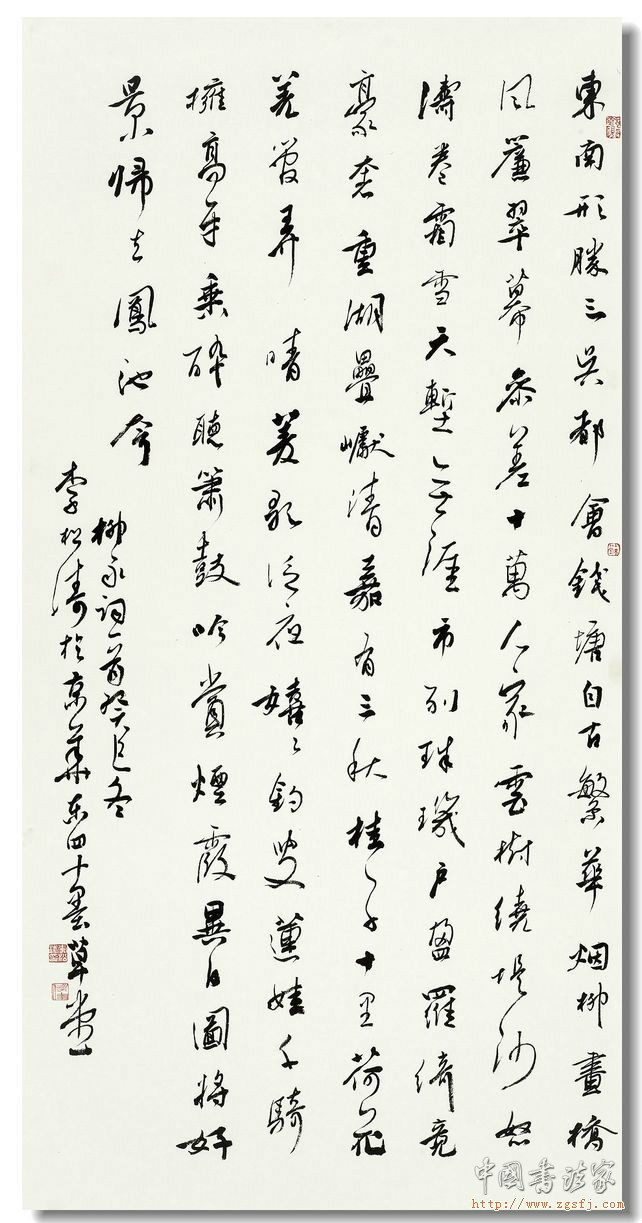 東南形勝三吳都會錢塘自古繁華烟柳畫橋
風簾翠幕參差十萬人家雲樹繞堤沙怒
濤卷霜雪天塹無涯市列珠璣戶盈羅綺競
豪奢重湖疊巘清嘉有三秋桂子十里荷花
羌管弄晴菱歌泛夜嬉〻釣叟蓮娃千騎
擁高牙乘醉聽簫鼓吟賞煙霞異日圖將好
景歸去鳳池夸
柳永詞一首癸巳冬
李松濤於京華東四十墨草堂
中國書法家
http://www.zgsfj.com